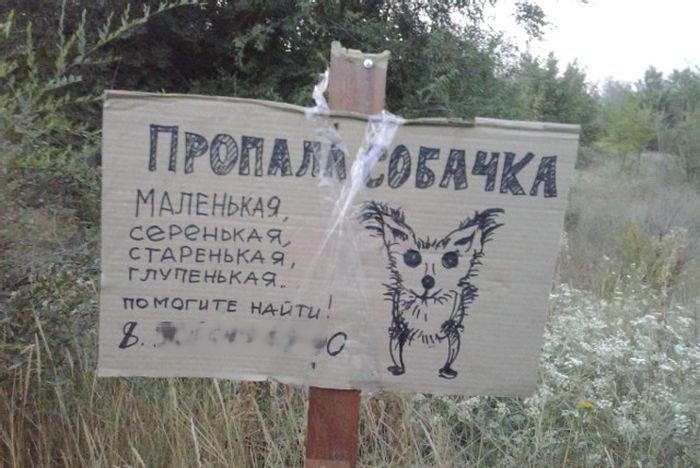 ПРОПАЛА СОБАЧКА
МАЛЕНЬКАЯ,
СЕРЕНЬКАЯ,
СТАРЕНЬКАЯ,
ГЛУПЕНЬКАЯ..
ПОМОГИТЕ НАЙТИ!
8.